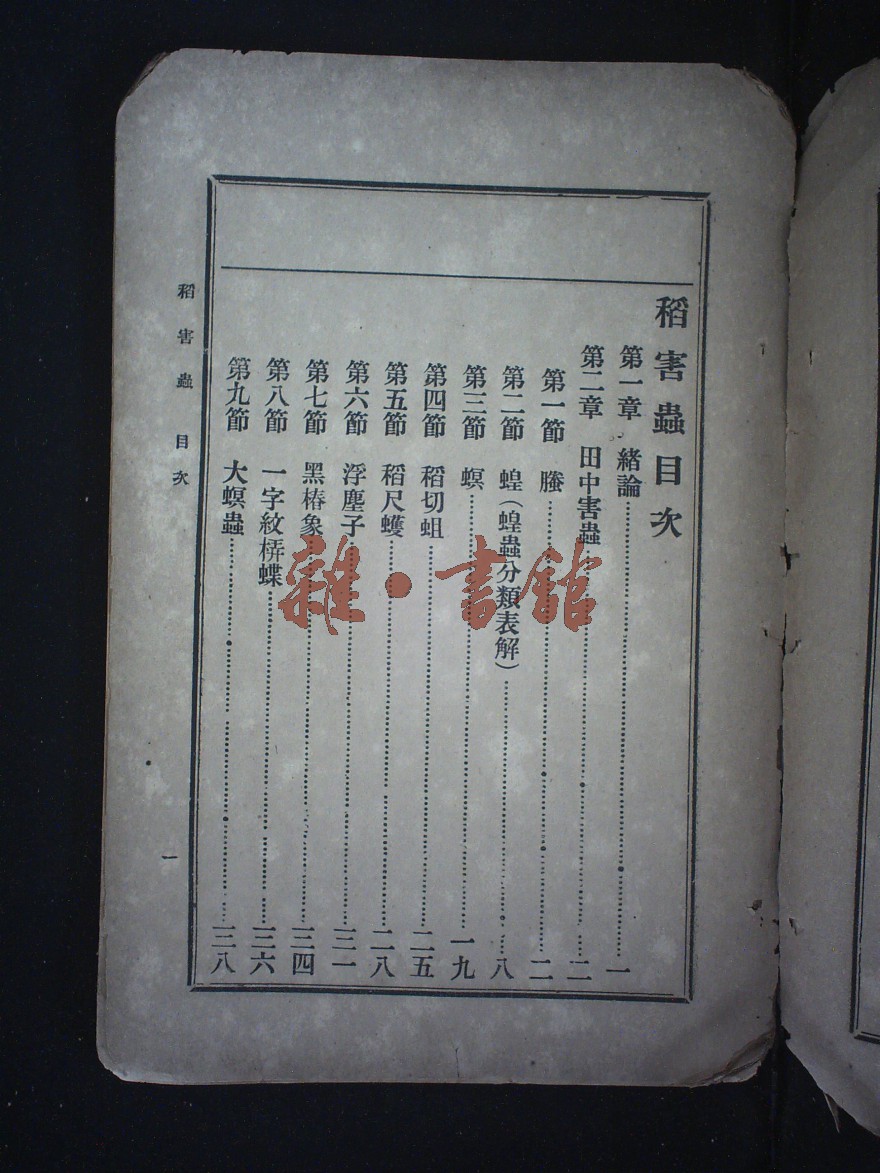 稻害蟲目次
第一章 緒論……一
第二章 田中害蟲……二
第一節 螣……二
第二節 蝗(蝗蟲分類表解)……八
第三節 螟……一九
第四節 稻切蛆……二五
第五節 稻尺蠖……二八
第六節 浮塵子……三一
第七節 黑椿象……三四
第八節 一字紋挵蝶……三六
第九節 大螟蟲……三八
稻害蟲 目次
一
雜·書館